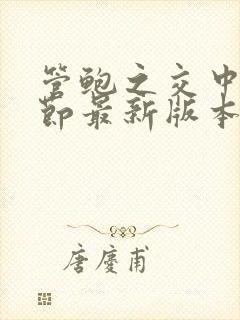 管鲍之交中
节最新版本
唐庆甫